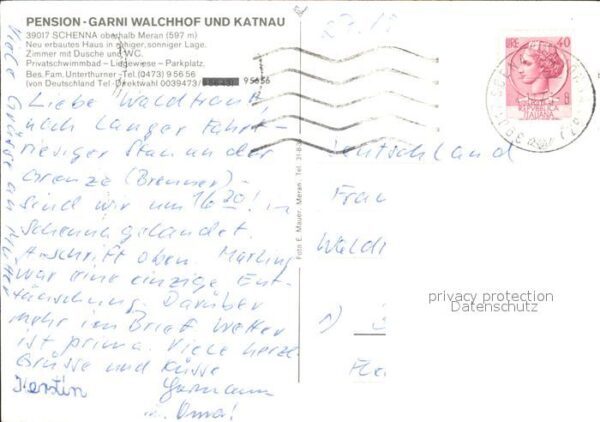 PENSION - GARNI WALCHHOF UND KATNAU
39017 SCHENNA oberhalb Meran (597 m)
Neu erbautes Haus in ruhiger, sonniger Lage.
Zimmer mit Dusche und WC.
Privatschwimmbad - Liegewiese - Parkplatz.
Bes. Fam. Unterthurner - Tel. (0473) 9 56 56
(von Deutschland Tel.-Direktwahl 0039473/ 95656
Liebe Waldtraut,
nach langer Fahrt -
riesiger Stau an der
Grenze (Brenner) -
sind wir um 16 30! in
Schenna gelandet.
Anschrift oben. Marling
war eine einzige Ent-
täuschung. Darüber
mehr im Brief. Wetter
ist prima. Viele herzl.
Grüsse und Küsse
Kerstin Hermann
u. Oma!
Viele Grüsse an Mutter
Foto E. Mauer, Meran
LIRE 40
REPUBBLICA
ITALIANA
Deutschland
Frau
Waldt
1)
privacy protection
Datenschutz